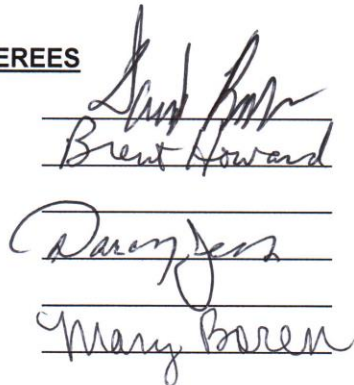 EREES
Brent Howard
Darcy Jech
Mary Boren